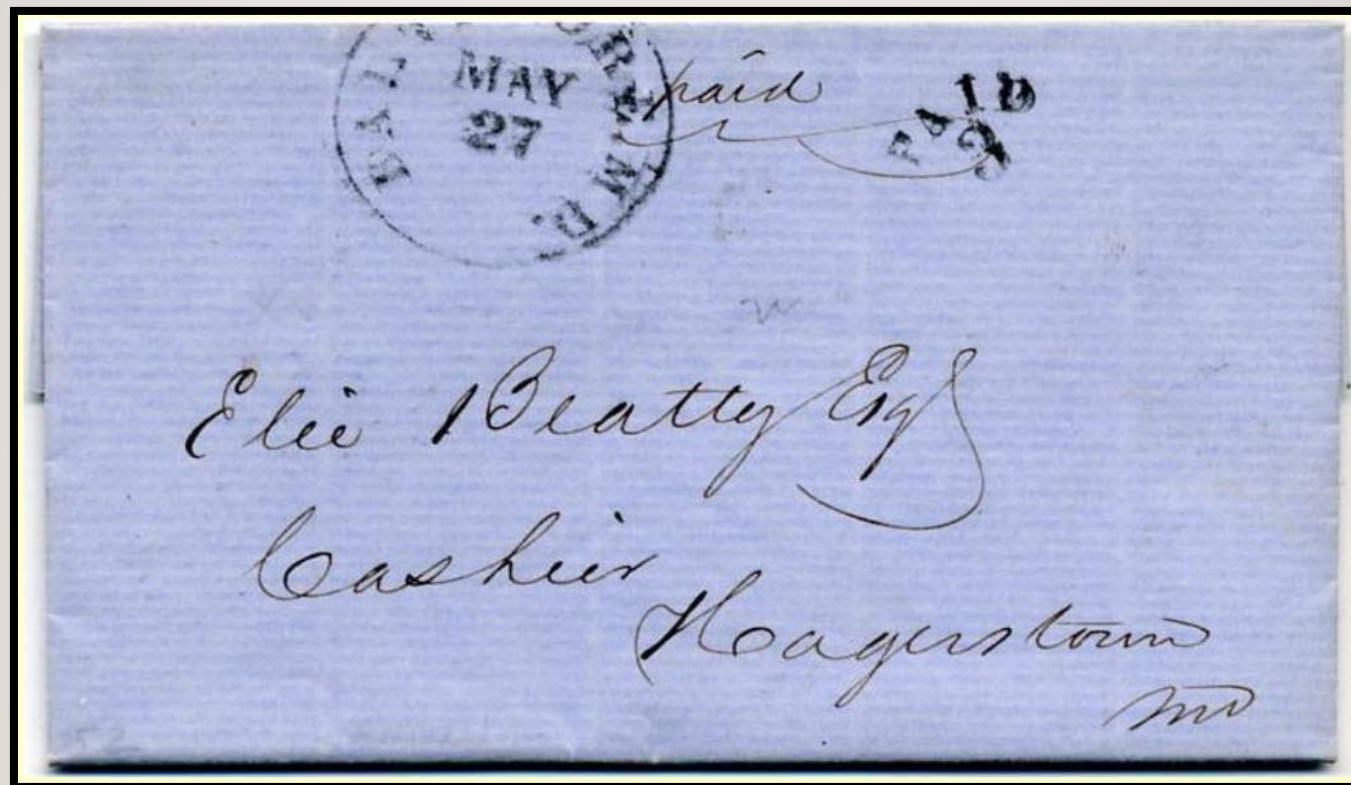 BALTIMORE, MD.
MAY
27
paid
PAID
3
Elie Beatty Esq
Cashier
Hagerstown
Md